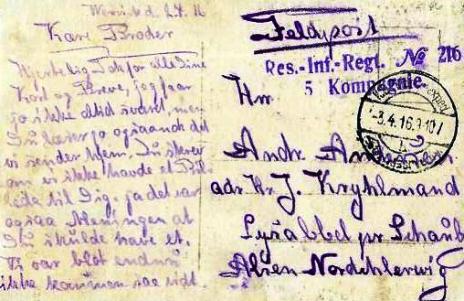 Kære Broder
Hjertelig Tak for alle dine
Kort og Breve, jeg faar
jo ikke altid svaret, men
Du læser jo ogsaa det
vi sender hjem. Du skrev
om vi ikke havde et Bil-
lede til Dig, ja det var
ogsaa Meningen at
Du skulde have et.
Vi var blot endnu
ikke kommen saa vidt.
Feldpost
Res.-Inf.-Regt. № 216
5 Kompagnie.
Hrn
-3.4.16.
Andr. Andersen
adr. Hr. J.
Lysabbel pr
Alsen Nordschleswig